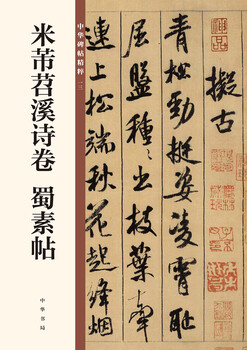 米芾苕溪诗卷 蜀素帖
中华碑帖精粹 一三
中华书局
擬古
青松勁挺姿凌霄耻
屈盤種〻出枝葉牽
連上松端秋花起絳烟